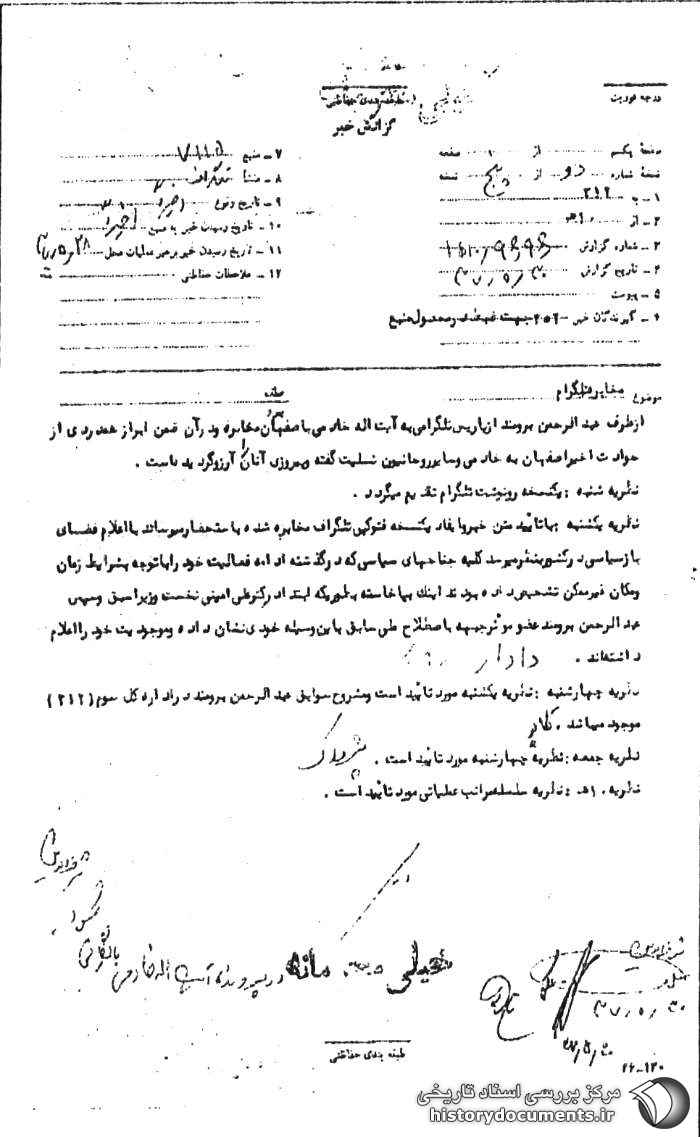 درجه فوریت
طبقه بندی حفاظتی
خیلی
گزارش خبر
صفحهٔ یکم از ۱ صفحه
نسخهٔ شماره دو از پنج نسخه
۱ - به ۳۱۲
۲ - از ۱۰هـ
۳ - شمارهٔ گزارش
۴ - تاریخ گزارش ۳۷/۵/۳۰
۵ - پیوست
۶ - گیرندگان خبر
۷ - منبع
۸ - منشأ تلگراف
۹ - تاریخ وقوع اخیرا
۱۰ - تاریخ رسیدن خبر به منبع اخیرا
۱۱ - تاریخ رسیدن خبر به رهبر عملیات محل ۳۷/۵/۲۸
۱۲ - ملاحظات حفاظتی
موضوع مخابره تلگرام
از طرف عبدالرحمن برومند از پاریس تلگرامی به آیت اله خادمی باصفهان مخابره و در آن ضمن ابراز همدردی از
حوادث اخیر اصفهان به خادمی و سایر روحانیون تسلیت گفته و پیروزی آنان را آرزو گردیده است .
نظریه شنبه : یکنسخه رونوشت تلگرام تقدیم میگردد .
نظریه یکشنبه با تأیید متن خبر و ایفاد یکنسخه فتوکپی تلگراف مخابره شده باستحضار میرساند با اعلام فضای
باز سیاسی در کشور بنظر میرسد کلیه جناحهای سیاسی که در گذشته ادامه فعالیت خود را با توجه بشرایط زمان
و مکان غیرممکن تشخیص داده بودند اینک بپاخاسته بطوریکه ابتدا دکتر علی امینی نخست وزیر اسبق و سپس
عبدالرحمن برومند عضو موثر جبهه باصطلاح ملی سابق باین وسیله خودی نشان داده و موجودیت خود را اعلام
داشته‌اند . دادار
نظریه چهارشنبه : نظریه یکشنبه مورد تائید است و مشروح سوابق عبدالرحمن برومند در اداره کل سوم (۳۱۲)
موجود میباشد .
نظریه جمعه : نظریه چهارشنبه مورد تائید است .
نظریه ۱۰هـ : نظریه سلسله مراتب عملیاتی مورد تائید است .
خیلی محرمانه
در پرونده آیت اله خادمی بایگانی
شود
۳۷/۵/۳۰
طبقه بندی حفاظتی
۲۶-۱۲۰
مرکز بررسی اسناد تاریخی
historydocuments.ir